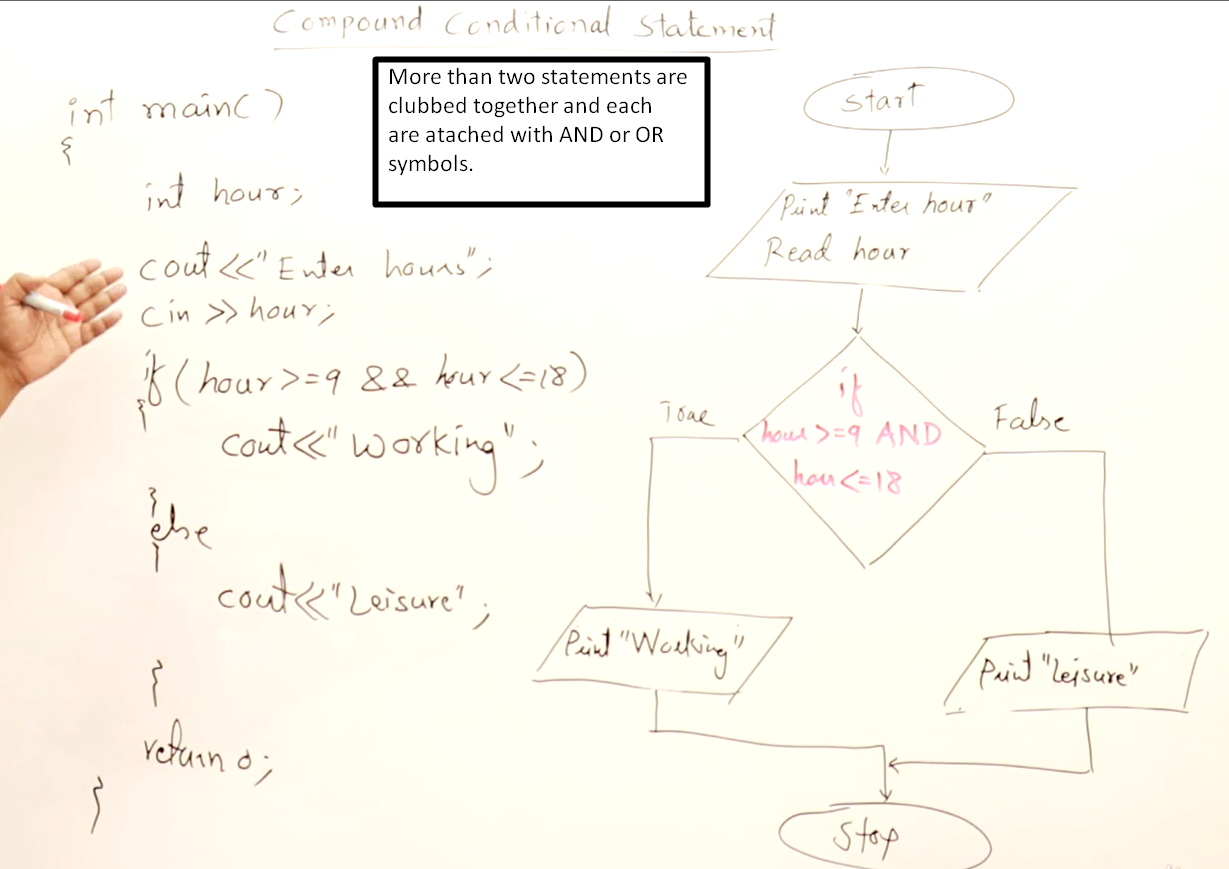 Compound Conditional Statement
More than two statements are
clubbed together and each
are atached with AND or OR
symbols.
int main()
{
int hour;
cout<<"Enter hours";
cin >> hour;
if (hour>=9 && hour<=18)
{
cout<<"Working";
}
else
{
cout<<"Leisure";
}
return 0;
}
Start
Print "Enter hour"
Read hour
if
hour>=9 AND
hour<=18
True
False
Print "Working"
Print "Leisure"
Stop